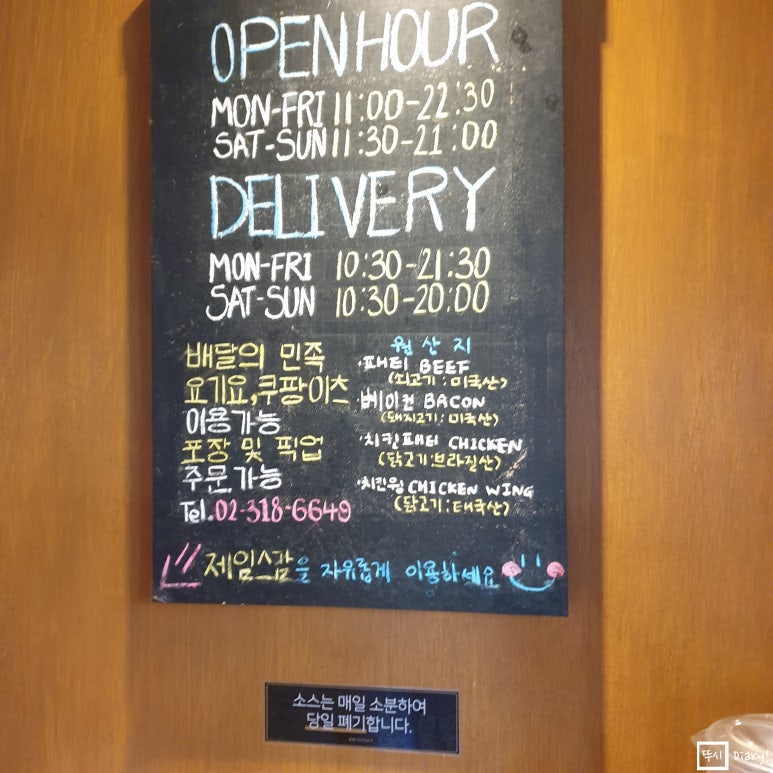 OPEN HOUR
MON-FRI 11:00-22:30
SAT-SUN 11:30-21:00
DELIVERY
MON-FRI 10:30-21:30
SAT-SUN 10:30-20:00
배달의 민족
요기요, 쿠팡이츠
이용가능
포장 및 픽업
주문 가능
Tel. 02-318-6649
원산지
·패티 BEEF
(쇠고기 : 미국산)
·베이컨 BACON
(돼지고기 : 미국산)
·치킨패티 CHICKEN
(닭고기:브라질산)
·치킨윙 CHICKEN WING
(닭고기 : 태국산)
제임스감을 자유롭게 이용하세요
소스는 매일 소분하여
당일 폐기합니다.
뚜시 Diary!